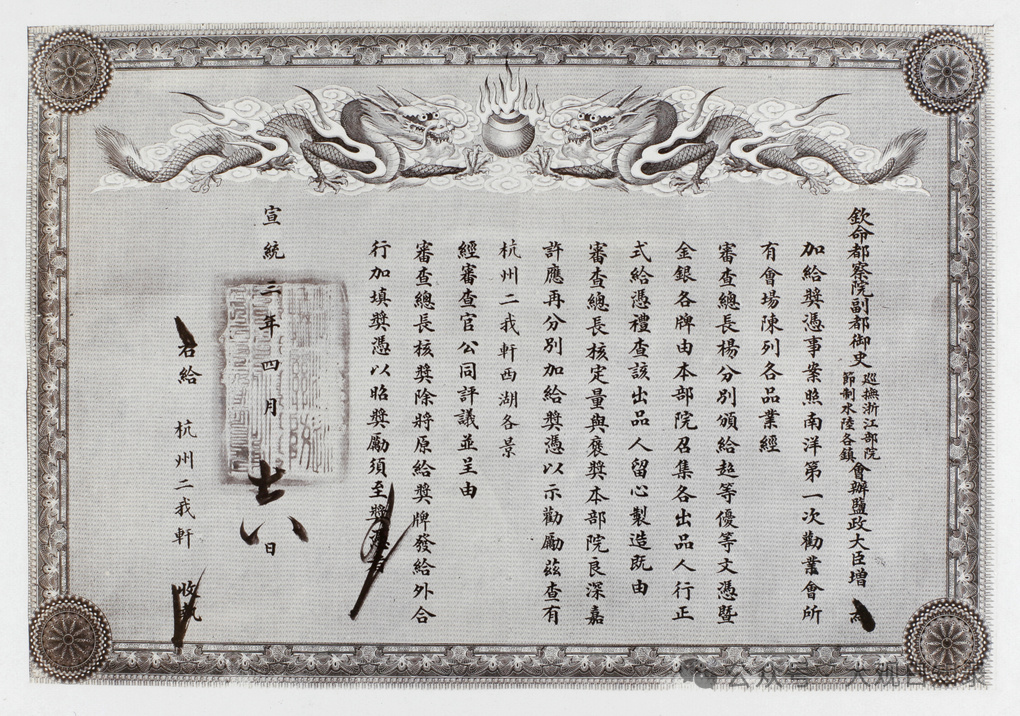 欽命都察院副都御史巡撫浙江部院節制水陸各鎮會辦鹽政大臣增 為
加給獎憑事案照南洋第一次勸業會所
有會場陳列各品業經
審查總長楊分別頒給超等優等文憑暨
金銀各牌由本部院召集各出品人行正
式給憑禮查該出品人留心製造既由
審查總長核定量與褒獎本部院良深嘉
許應再分別加給獎憑以示勸勵茲查有
杭州二我軒西湖各景
經審查官公同評議並呈由
審查總長核獎除將原給獎牌發給外合
行加填獎憑以昭獎勵須至獎憑者
宣統三年四月 十八日
右給 杭州二我軒 收執
公众号